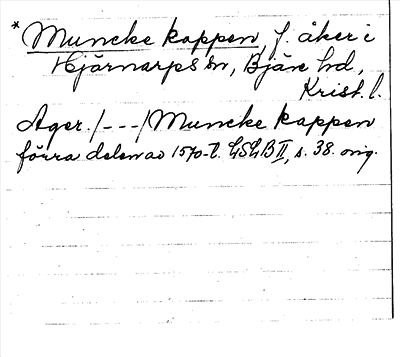 * Muncke kappen, f. åker i
Hjärnarps sn, Bjäre hd,
Krist. l.
Ager. /---/ Muncke kappen
förra delen av 1570-t. LSLB II, s. 38. orig.